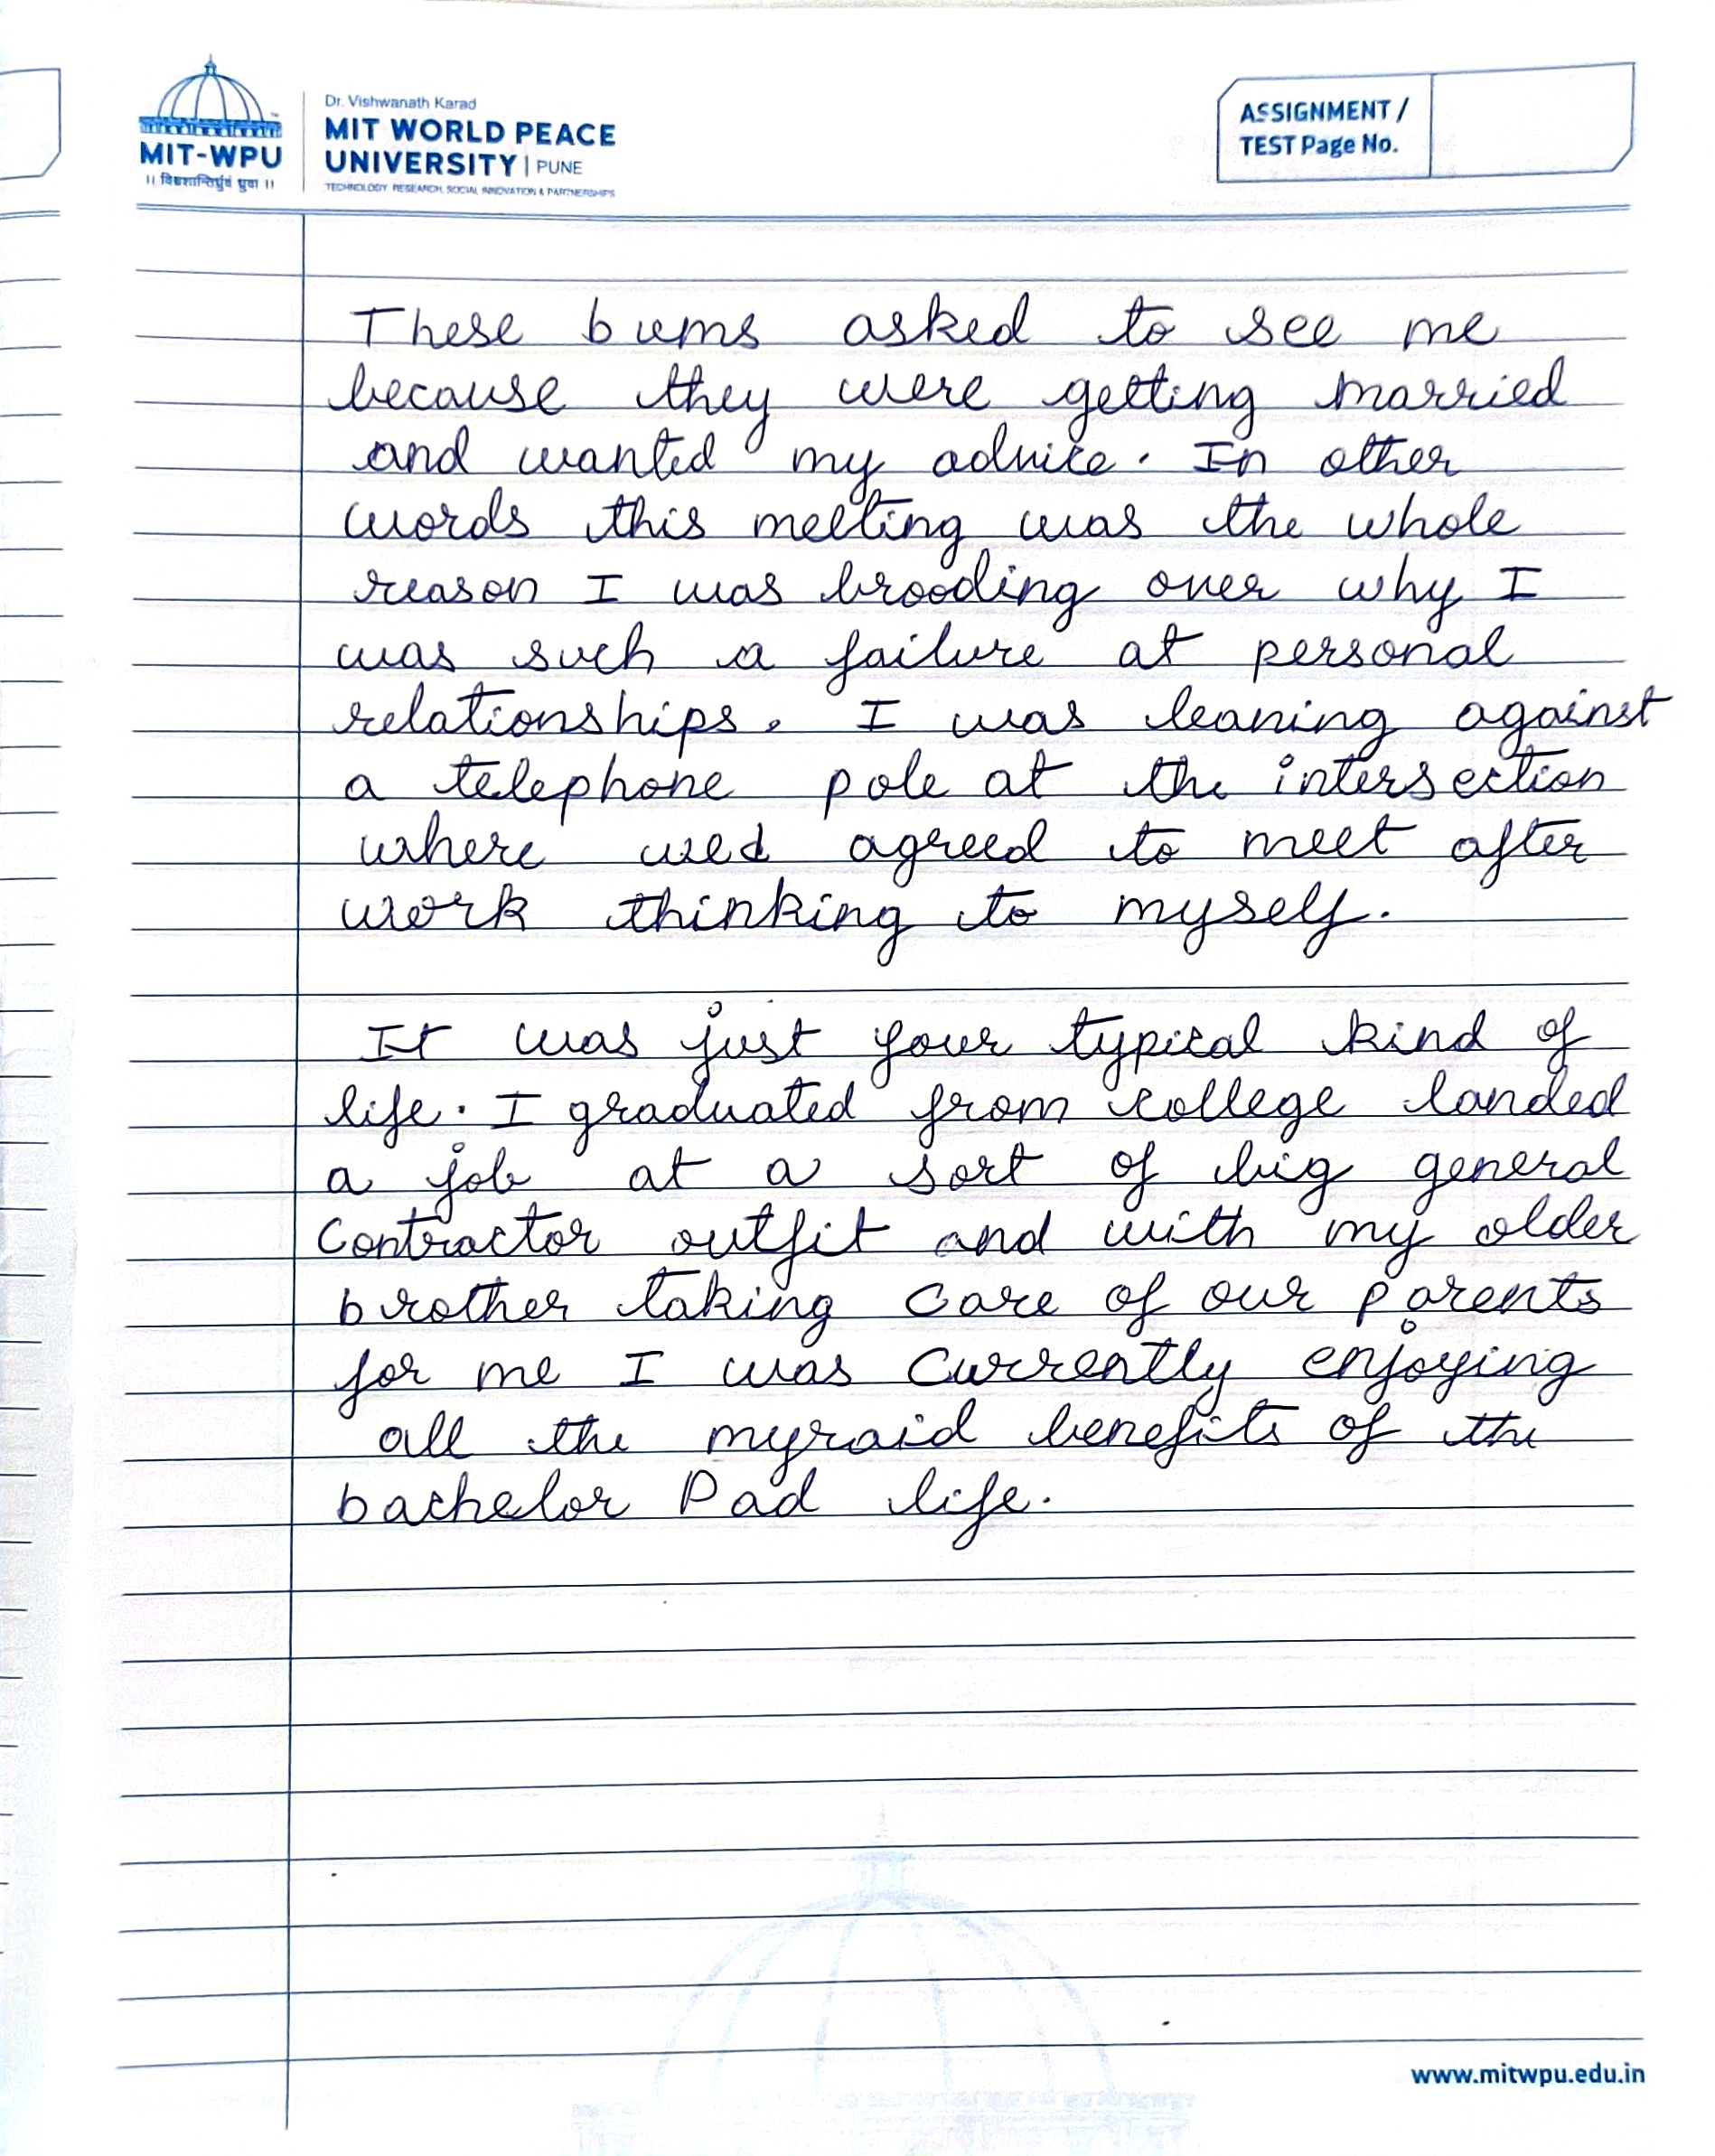 Dr. Vishwanath Karad
MIT WORLD PEACE
UNIVERSITY | PUNE
TECHNOLOGY, RESEARCH, SOCIAL INNOVATION & PARTNERSHIPS
MIT-WPU
॥ विश्वशान्तिर्ध्रुवं ध्रुवा ॥
ASSIGNMENT /
TEST Page No.
These bums asked to see me
because they were getting married
and wanted my advice. In other
words this meeting was the whole
reason I was brooding over why I
was such a failure at personal
relationships. I was leaning against
a telephone pole at the intersection
where wed agreed to meet after
work thinking to myself.
It was just your typical kind of
life. I graduated from college landed
a job at a sort of big general
Contractor outfit and with my older
brother taking care of our parents
for me I was currently enjoying
all the myraid benefits of the
bachelor Pad life.
www.mitwpu.edu.in